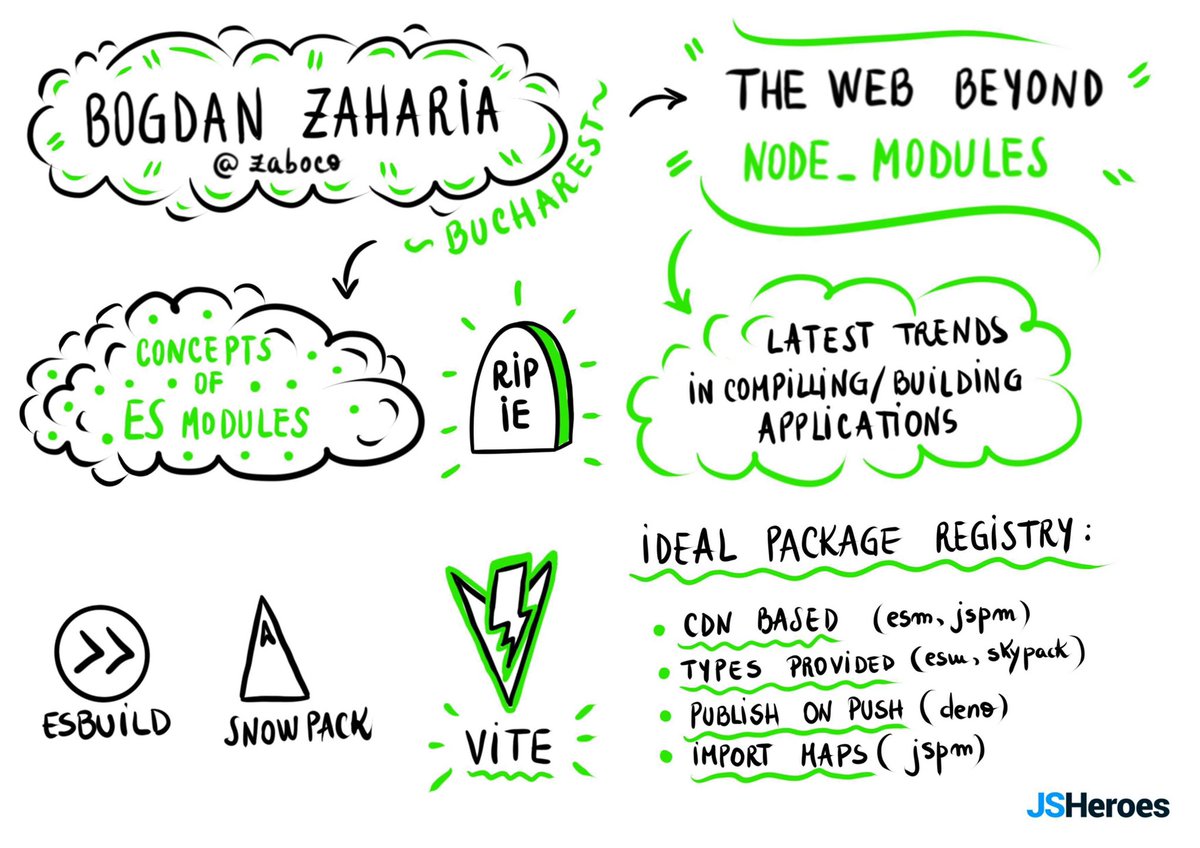 BOGDAN ZAHARIA
@zaboco
~ BUCHAREST ~
"THE WEB BEYOND"
"NODE_MODULES"
CONCEPTS
OF
ES MODULES
RIP
IE
LATEST TRENDS
IN COMPILLING/BUILDING
APPLICATIONS
ESBUILD
SNOWPACK
VITE
IDEAL PACKAGE REGISTRY:
• CDN BASED (esm, jspm)
• TYPES PROVIDED (esm, skypack)
• PUBLISH ON PUSH (deno)
• IMPORT MAPS (jspm)
JSHeroes